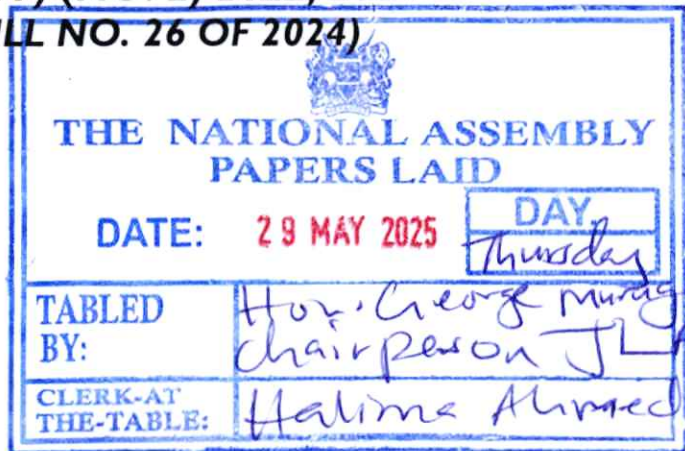 LL NO. 26 OF 2024)
THE NATIONAL ASSEMBLY
PAPERS LAID
DATE: 29 MAY 2025
DAY
Thursday
TABLED BY: Hon. George
Chairperson
CLERK-AT THE-TABLE: Halima Ahmed